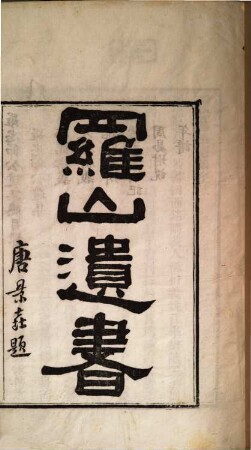 羅山遺書
唐景崧題